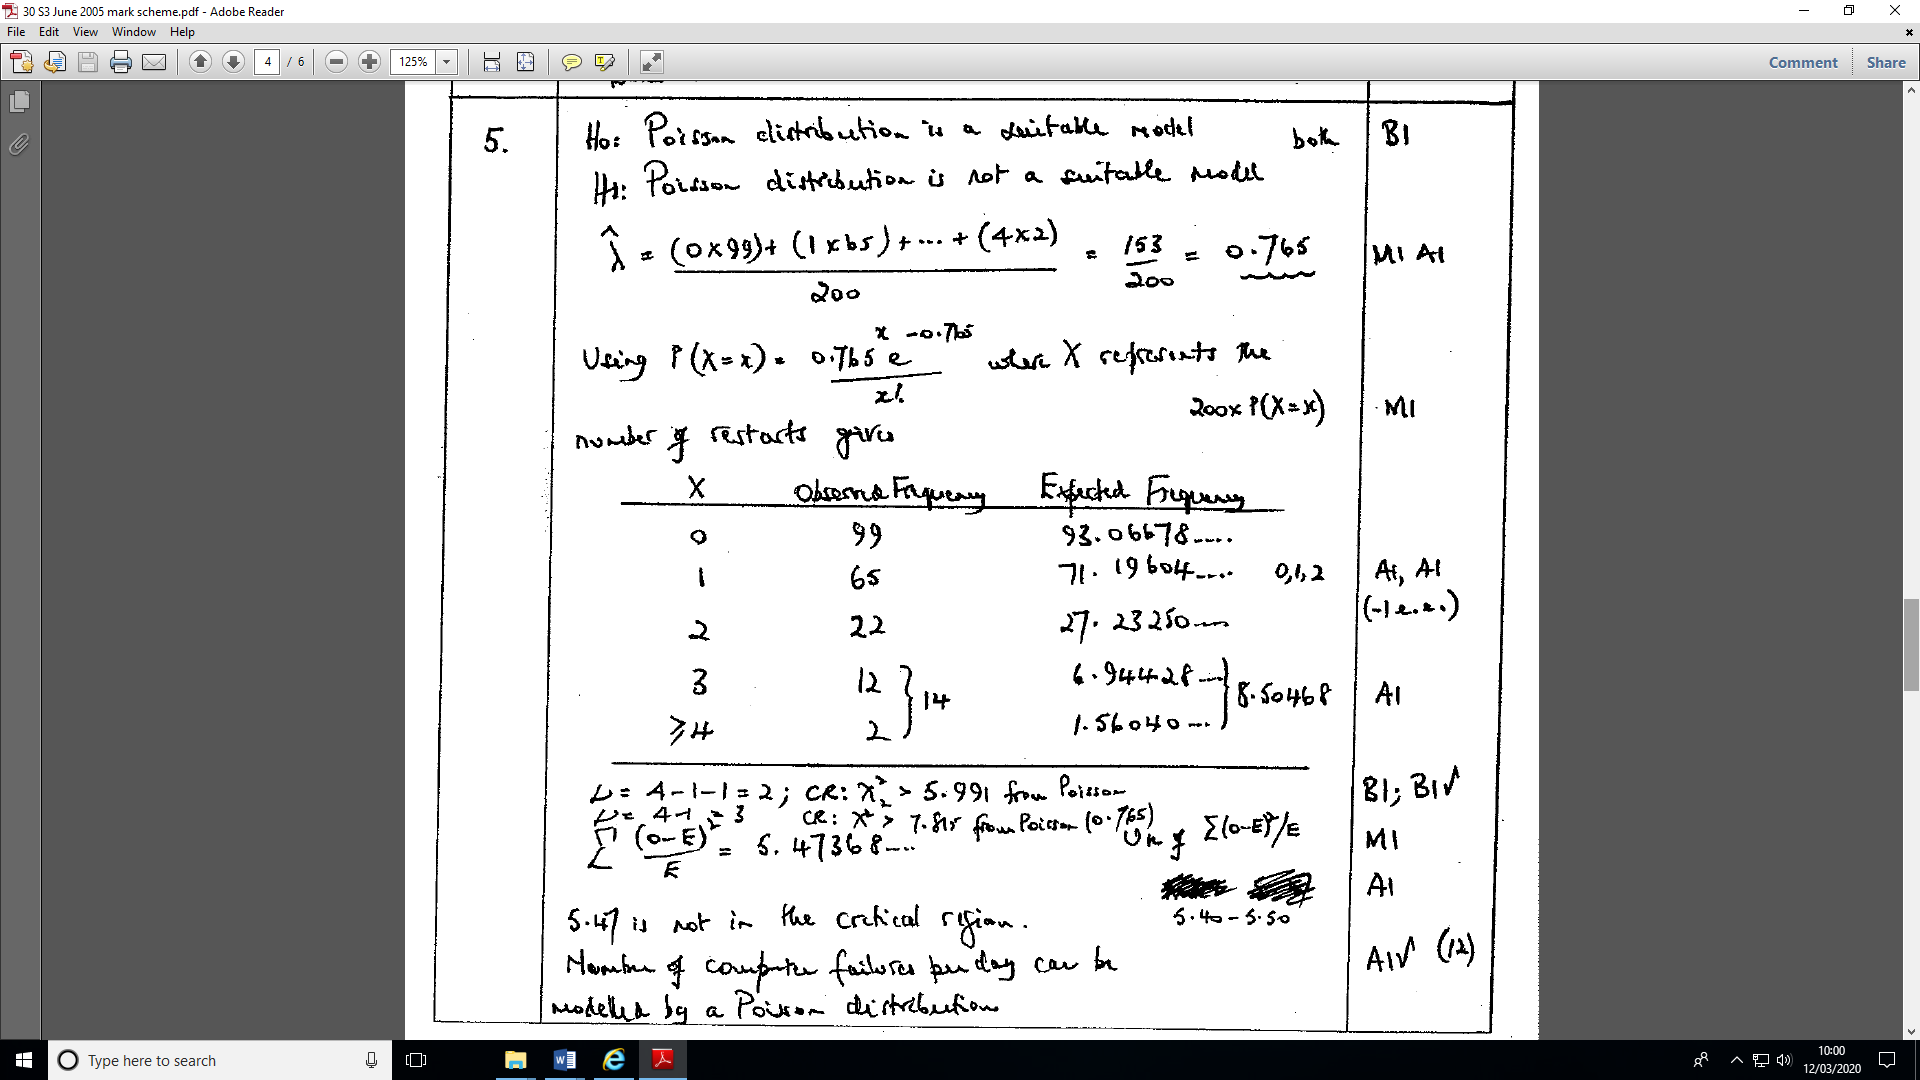 30 S3 June 2005 mark scheme.pdf - Adobe Reader
File Edit View Window Help
4 / 6 125% Comment Share
5. H0: Poisson distribution is a suitable model both B1
H1: Poisson distribution is not a suitable model
λ̂ = (0x99)+ (1x65)+...+ (4x2) / 200 = 153/200 = 0.765 M1 A1
Using P(X=x) = 0.765^x e^-0.765 / x! where X represents the
200x P(X=x) M1
number of restarts gives
X Observed Frequency Expected Frequency
0 99 93.06678.....
1 65 71.19604.... 0,1,2 A1, A1
(-1 e.e.)
2 22 27.23250....
3 12 } 14 6.94428... } 8.50468 A1
≥4 2 1.56040...
ν = 4-1-1=2; CR: χ²₂ > 5.991 from Poisson B1; B1√
ν = 4-1 = 3 CR: χ² > 7.815 from Poisson (0.765)
Σ (O-E)²/E = 5.47368.... Use of Σ(O-E)²/E M1
A1
5.40 - 5.50
5.47 is not in the critical region.
Number of computer failures per day can be A1√ (12)
modelled by a Poisson distribution
Type here to search
10:00
12/03/2020